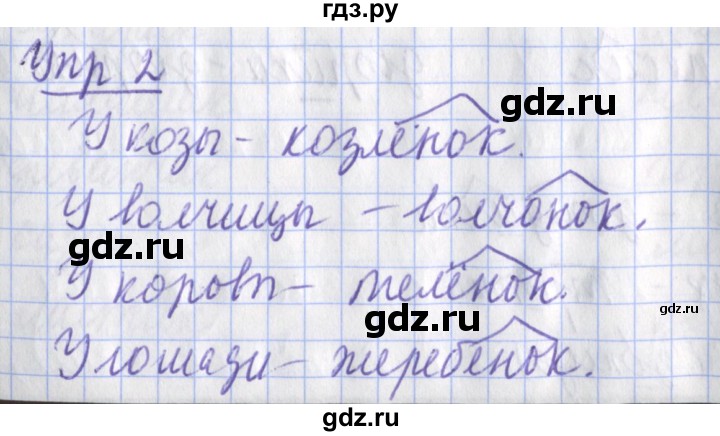 гдз.ру
Упр 2
У козы - козлёнок.
gdz.ru
У волчицы - волчонок.
gdz.ru
У коровы - телёнок.
gdz.ru
gdz.ru
У лошади - жеребёнок.
gdz.ru